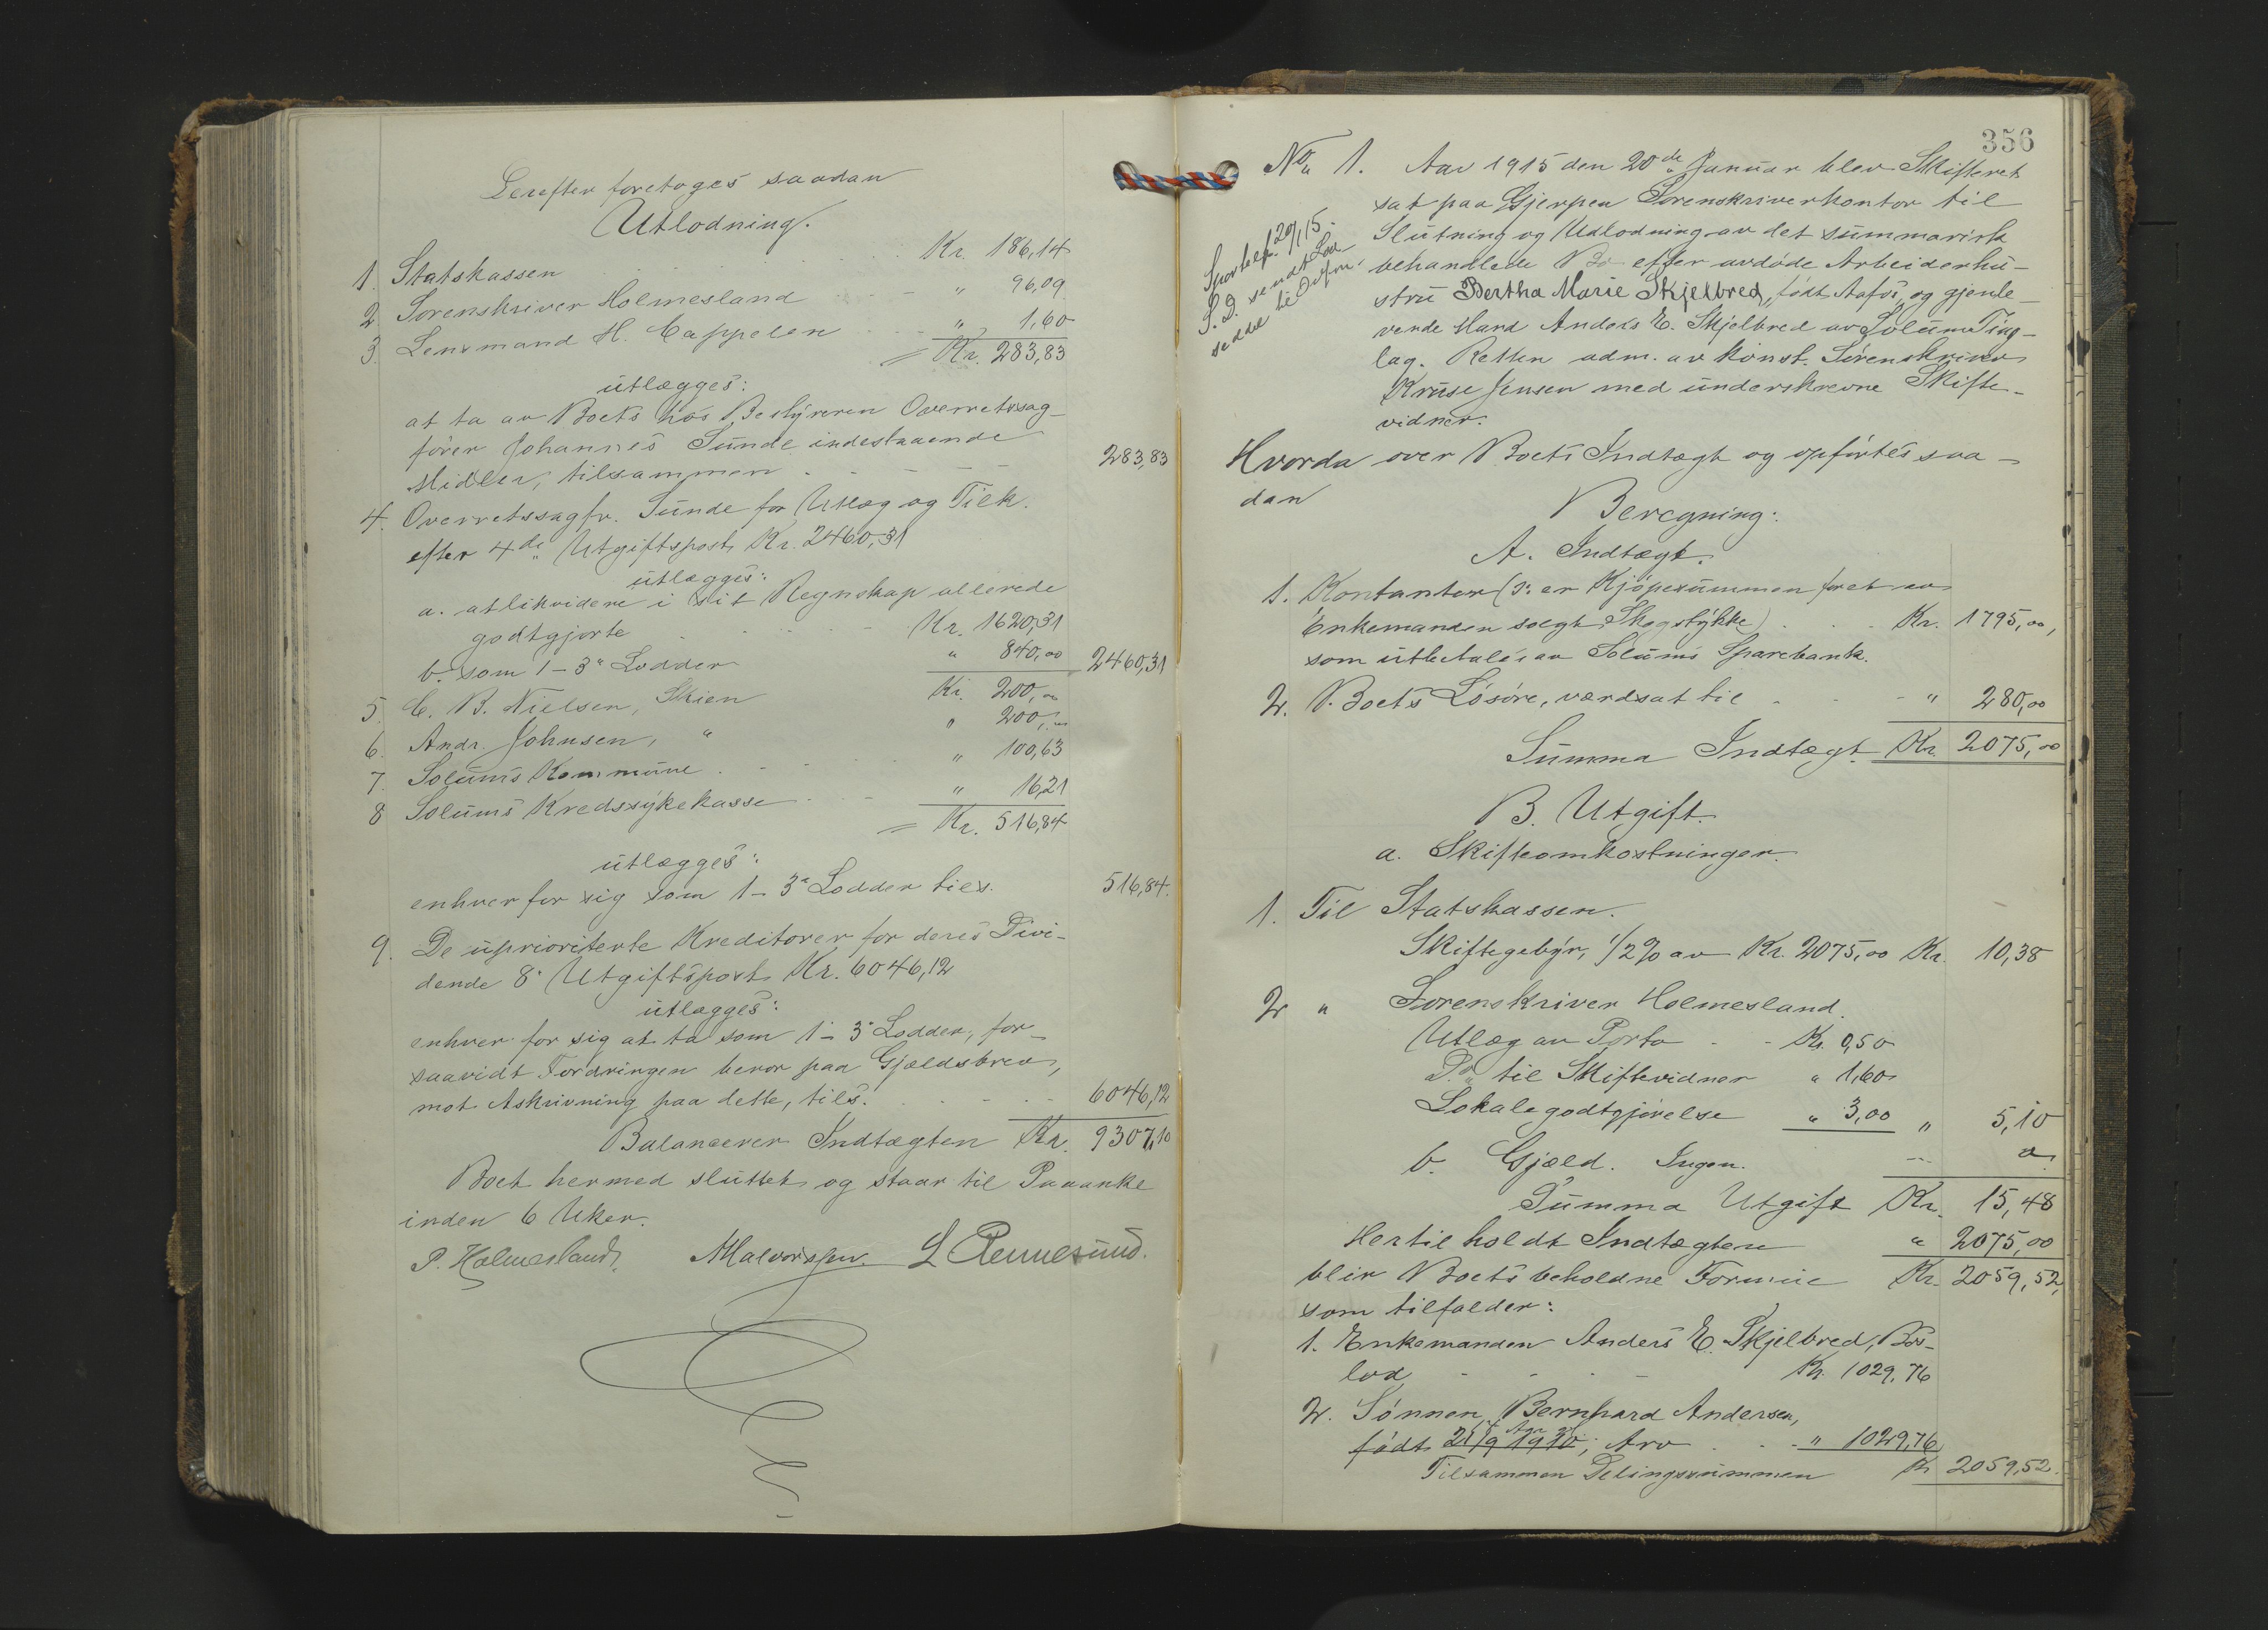 Derefter foretoges saadan
Utlodning.
1. Statskassen Kr. 186,14
2. Sorenskriver Holmesland " 96,09
3. Lensmand H. Cappelen " 1,60
= Kr. 283,83
utlægges:
at ta av Boets hos Bestyreren Overretssag-
fører Johannes Sunde indestaaende
Midler, tilsammen 283,83
4. Overretssagfr. Sunde for Utlæg og Tilk.
efter 4de Utgiftspost Kr. 2460,31
utlægges:
a. at likvidere i sit Regnskap allerede
godtgjorte Kr. 1620,31
b. som 1-3" Lodder " 840,00 2460,31
5. C. B. Nielsen, Skien Kr. 200,00
6. Andr. Johnsen, " " 200,00
7. Solums Kommune " 100,63
8 Solums Kredssykekasse " 16,21
= Kr. 516,84
utlægges:
enhver for sig som 1-3" Lodder tils. 516,84.
9. De uprioriterte Kreditorer for deres Divi-
dende 8" Utgiftspost Kr. 6046,12
utlægges:
enhver for sig at ta som 1-3" Lodder, for-
saavidt Fordringen beror paa Gjældsbrev,
mot Avskrivning paa dette, tils. 6046,12
Balancerer Indtægten Kr. 9307,10
Boet hermed sluttet og staar til Paaanke
inden 6 Uker.
P. Holmesland. L Rennesund.
356
No 1. Aar 1915 den 20de Januar blev Skifteret
sat paa Gjerpen Sorenskriverkontor til
Slutning og Udlodning av det summarisk
behandlede Bo efter avdøde Arbeiderhu-
stru Bertha Marie Skjelbred, født Aafos, og gjenle-
vende Mand Anders E. Skjelbred av Solum Ting-
lag. Retten adm. av konst. Sorenskriver
Kruse Jensen med underskrevne Skifte-
vidner.
20/1 15.
S. D. sendt
seddel til
Hvorda over Boets Indtægt og opførtes saa-
dan
Beregning:
A. Indtægt.
1. Kontanter (ɔ: er Kjøpesummen foret av
Enkemanden solgt Skogstykke) Kr. 1795,00,
som utbetales av Solums Sparebank.
2. Boets Løsøre, værdsat til " 280,00
Summa Indtægt Kr. 2075,00
B. Utgift.
a. Skifteomkostninger.
1. Til Statskassen.
Skiftegebyr, 1/2 % av Kr. 2075,00 Kr. 10,38
2 " Sorenskriver Holmesland.
Utlæg av Porto Kr. 0,50
Do til Skiftevidner " 1,60
Lokalegodtgjørelse " 3,00 " 5,10
b. Gjæld. Ingen.
Summa Utgift Kr. 15,48
Hertil holdt Indtægten " 2075,00
blir Boets beholdne Formue Kr. 2059,52,
som tilfalder:
1. Enkemanden Anders E. Skjelbred, Bos-
lod Kr. 1029,76
2. Sønnen Bernhard Andersen,
født 21/9 1910, Arv " 1029,76
Tilsammen Delingssummen Kr 2059,52.